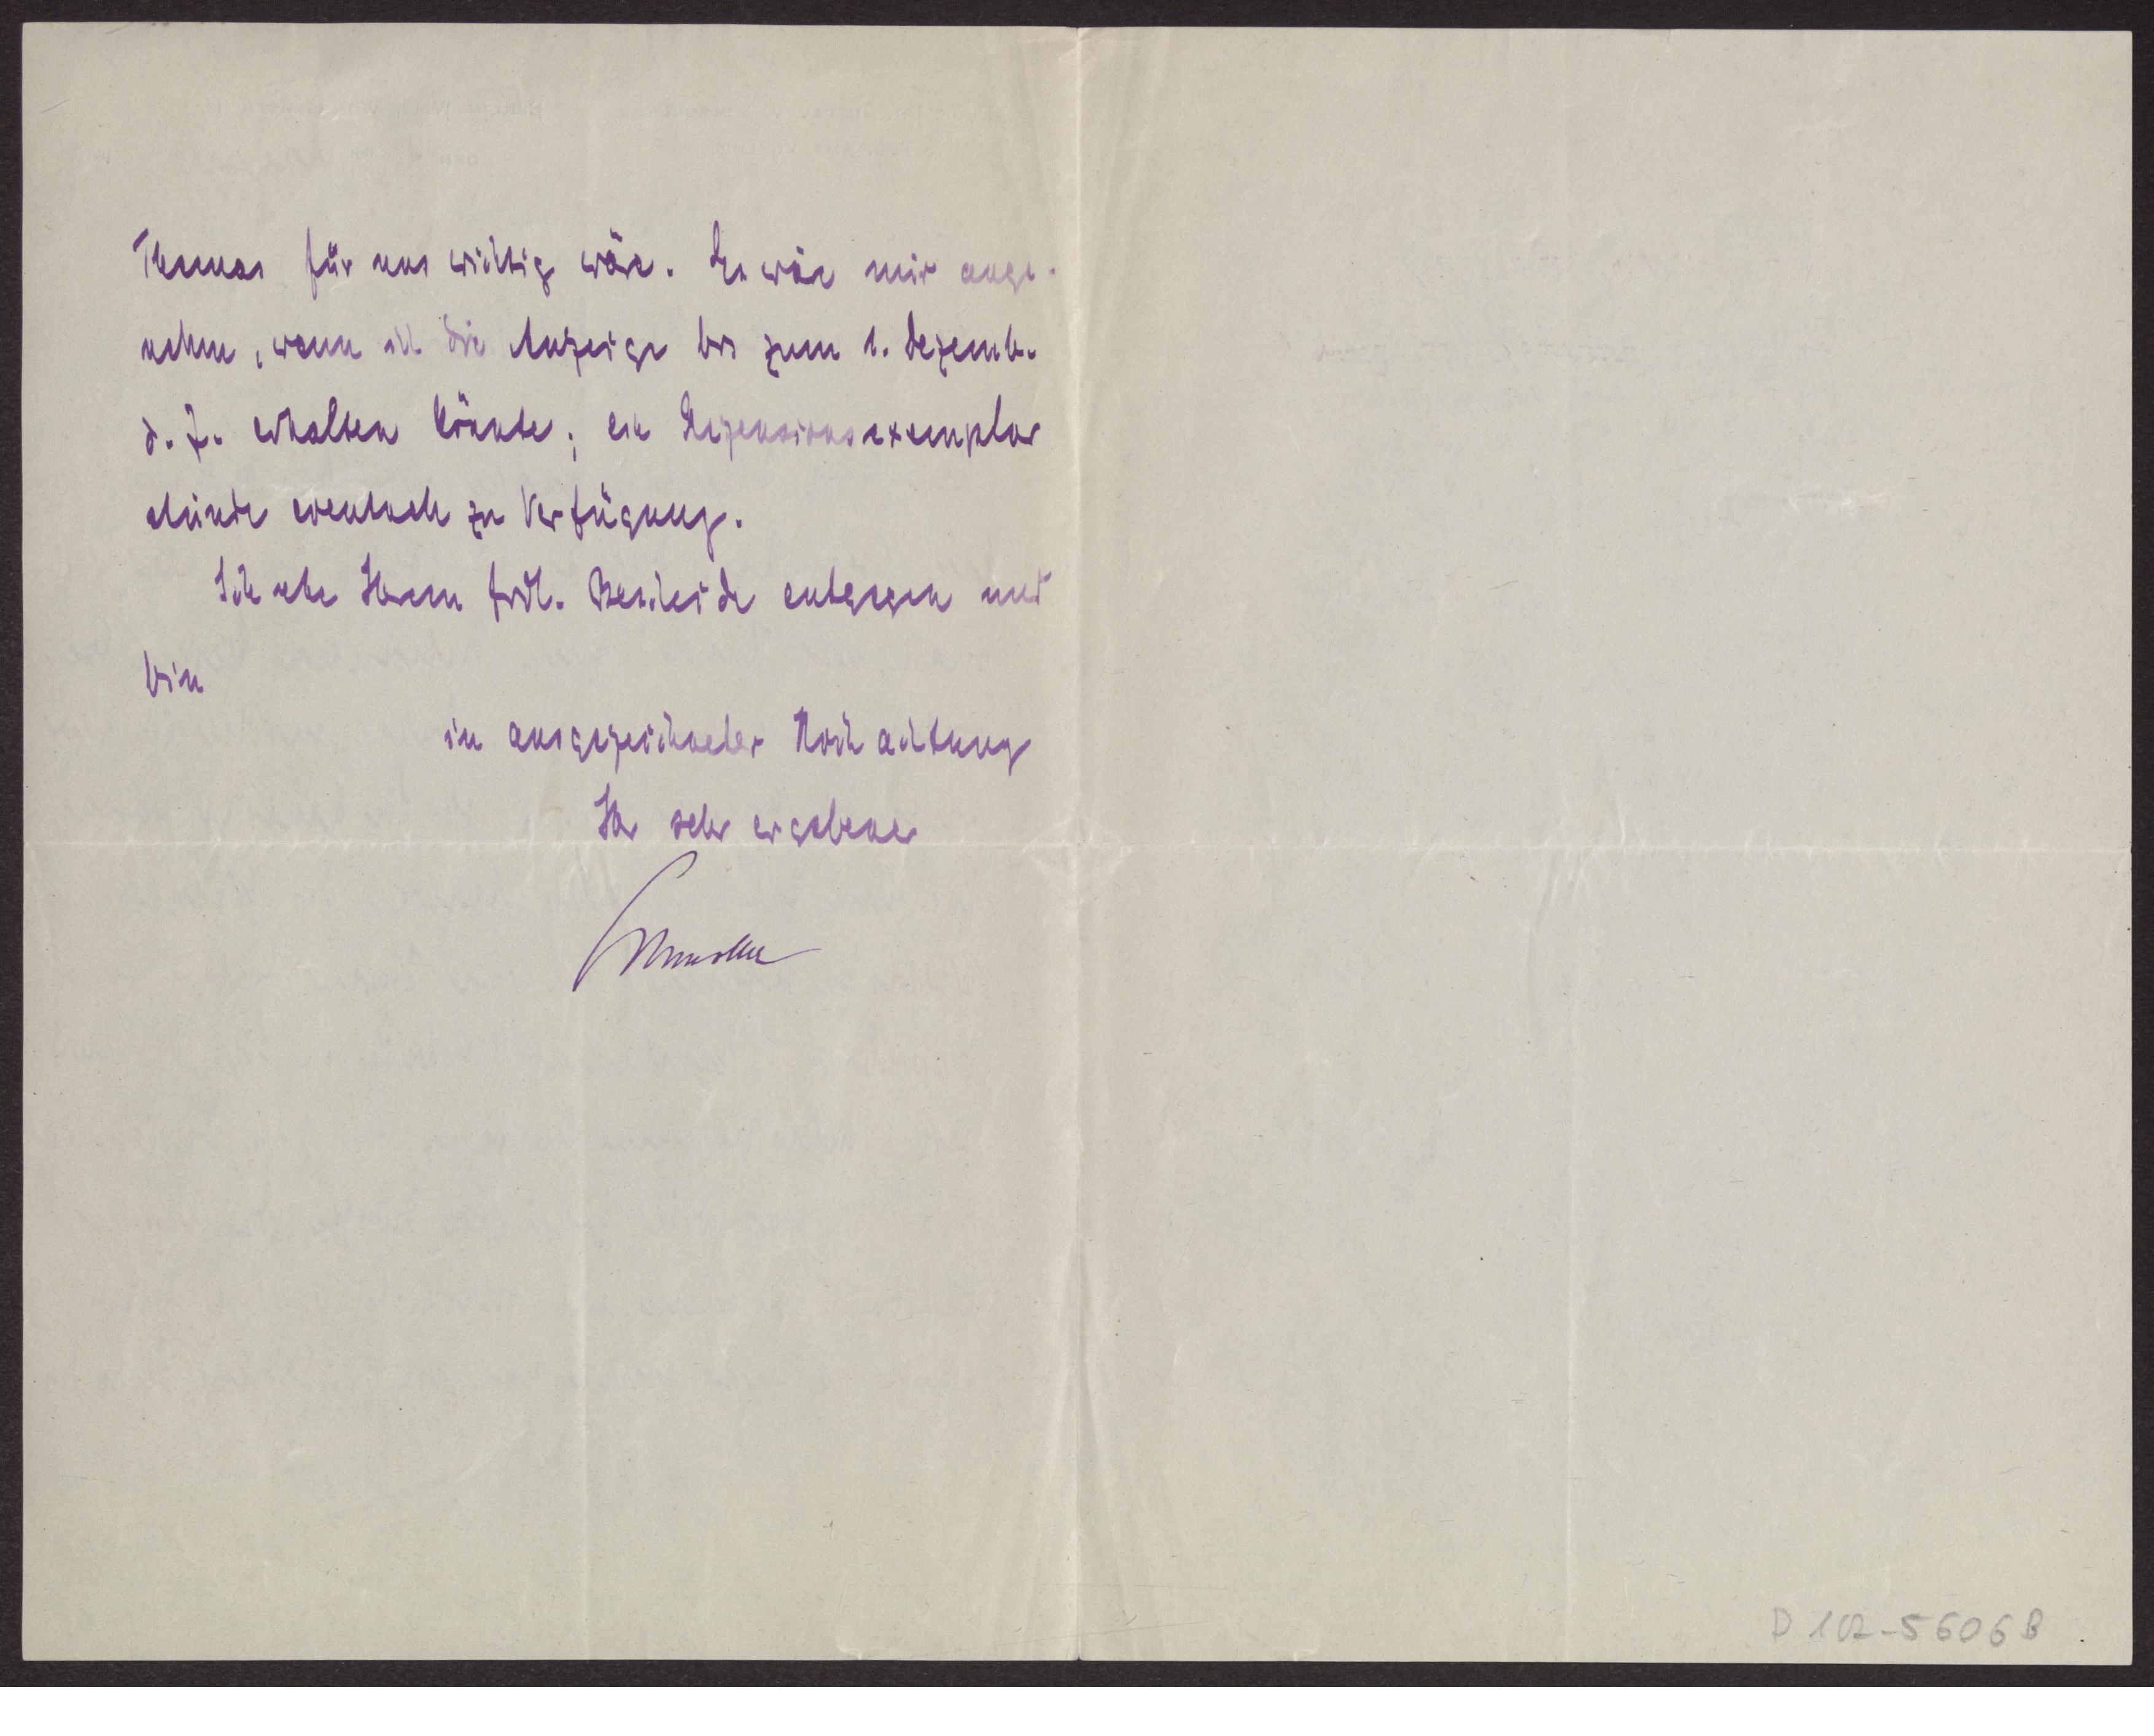 Themas für uns wichtig wäre. Es wäre mir ange-
nehm, wenn ich die Anzeige bis zum 1. Dezemb.
d. J. erhalten könnte; ein Rezensionsexemplar
stünde eventuell zu Verfügung.
Ich sehe Ihrem frdl. Bescheide entgegen und
bin
in ausgezeichneter Hochachtung
Ihr sehr ergebener
D 102-5606 B